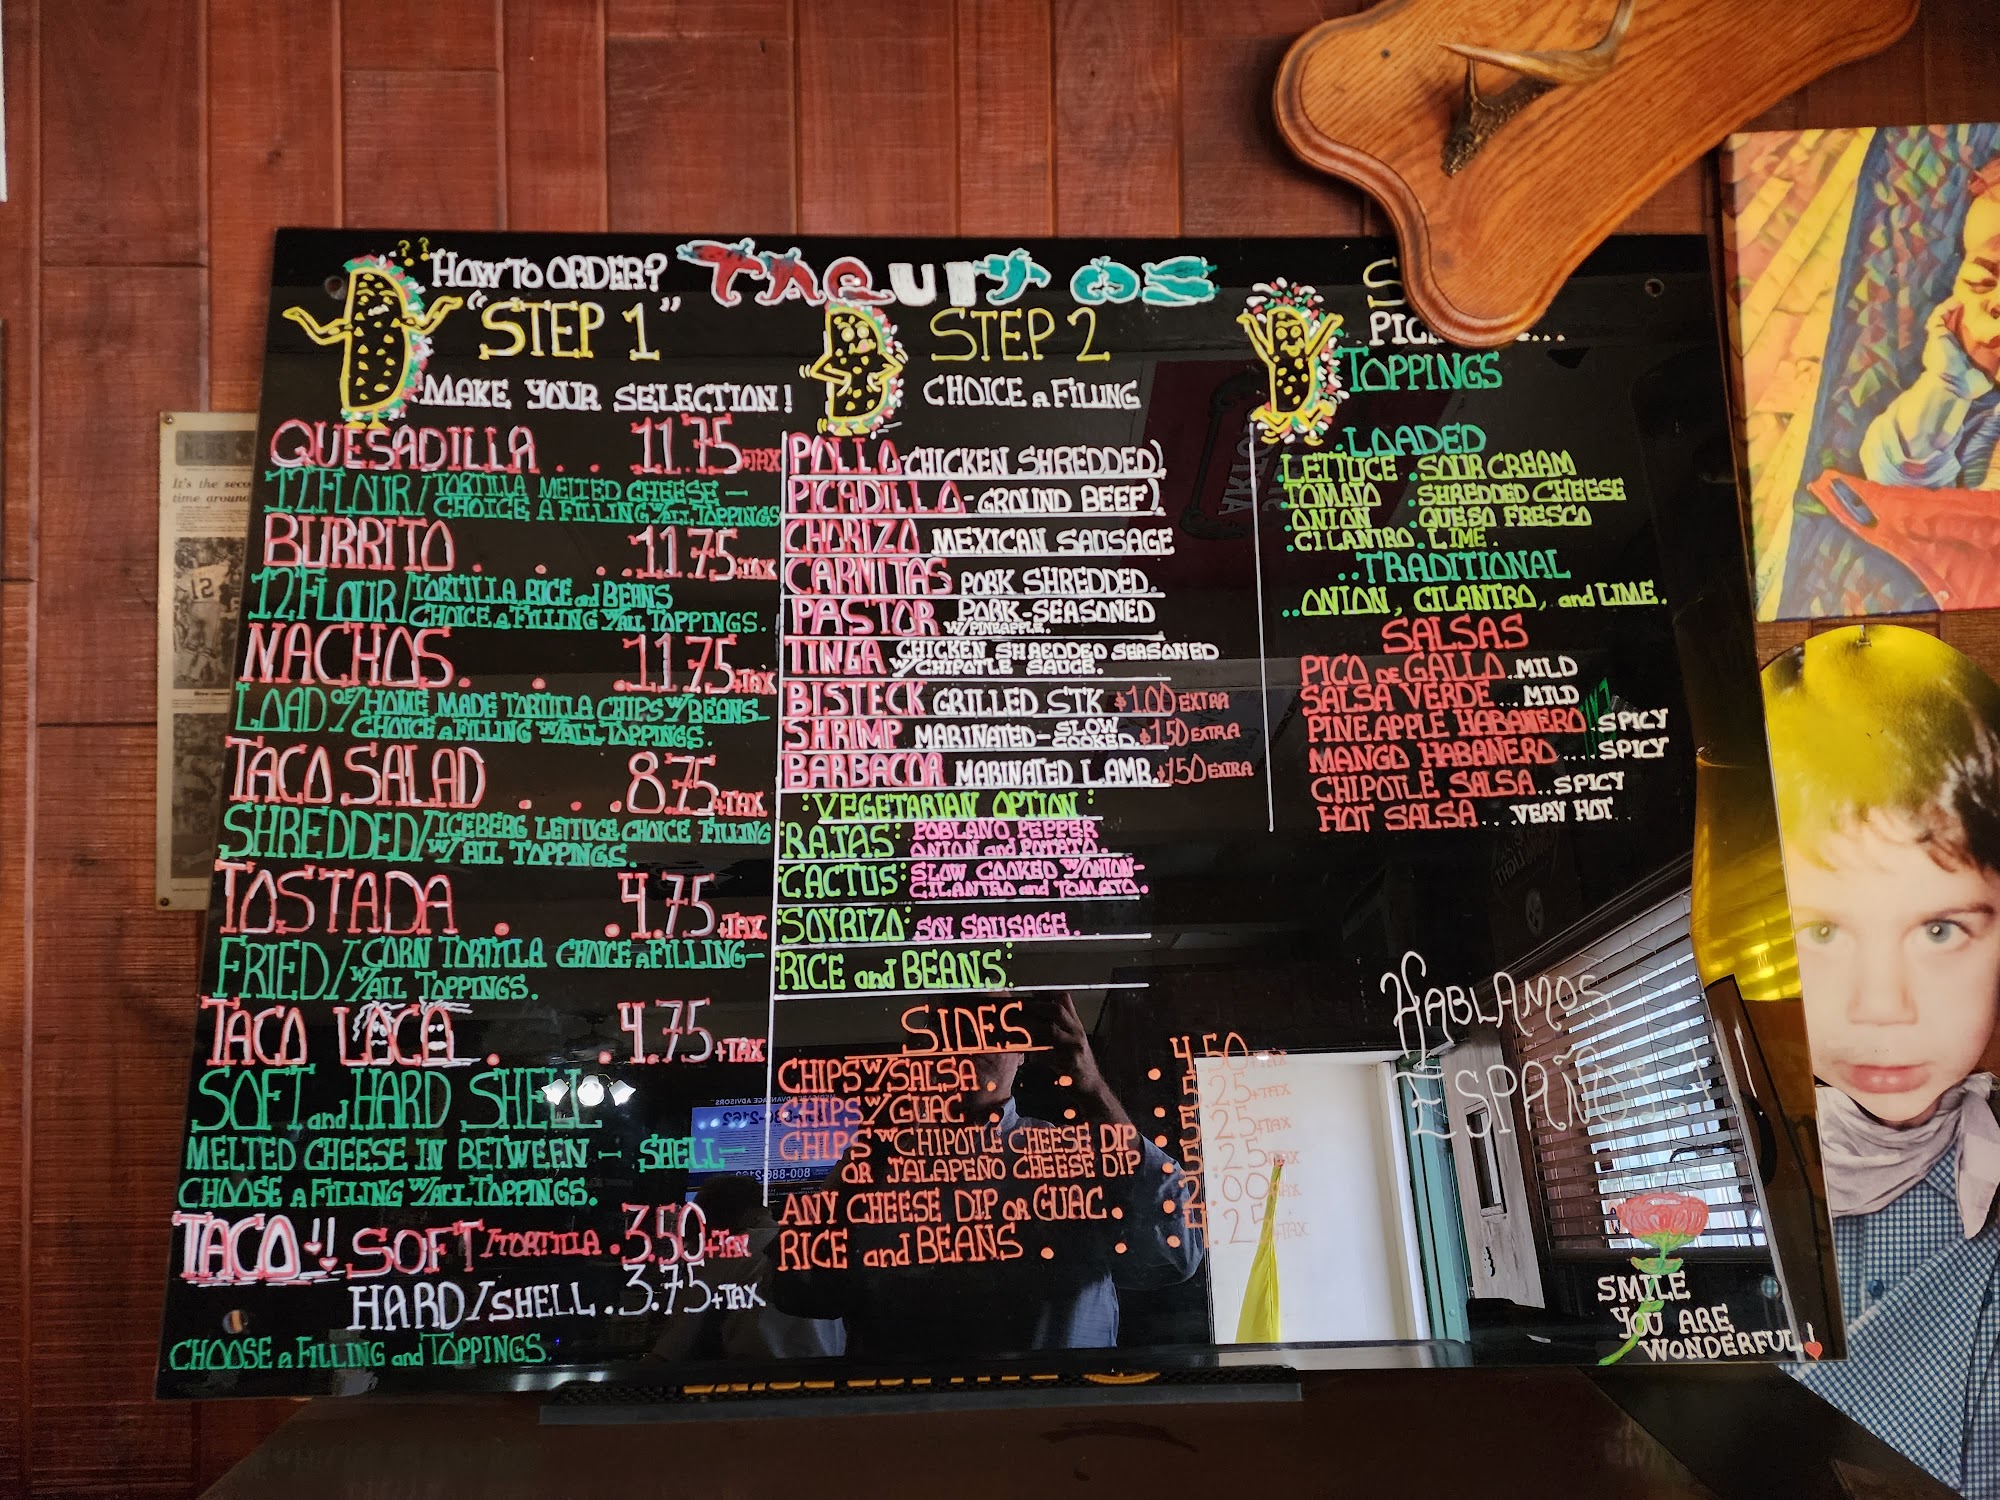 HOW TO ORDER?
TAQUITOS
"STEP 1"
MAKE YOUR SELECTION!
QUESADILLA . . 11.75+TAX
12"FLOUR/TORTILLA MELTED CHEESE-
CHOICE A FILLING W/ALL TOPPINGS
BURRITO . . . 11.75+TAX
12"FLOUR/TORTILLA RICE and BEANS
CHOICE a FILLING W/ALL TOPPINGS.
NACHOS. . . 11.75+TAX
LOAD OF/HOME MADE TORTILLA CHIPS W/BEANS-
CHOICE a FILLING W/ALL TOPPINGS.
TACO SALAD . . .8.75+TAX
SHREDDED/ICEBERG LETTUCE CHOICE FILLING
W/ALL TOPPINGS.
TOSTADA . . 4.75+TAX
FRIED/CORN TORTILLA CHOICE a FILLING-
W/ALL TOPPINGS.
TACO LOCA . . 4.75+TAX
SOFT and HARD SHELL
MELTED CHEESE IN BETWEEN - SHELL-
CHOOSE a FILLING W/ALL TOPPINGS.
TACO!! SOFT/TORTILLA .3.50+TAX
HARD/SHELL .3.75+TAX
CHOOSE a FILLING and TOPPINGS.
STEP 2
CHOICE a FILLING
POLLO-CHICKEN SHREDDED)
PICADILLO-GROUND BEEF)
CHORIZO MEXICAN SAUSAGE
CARNITAS PORK SHREDDED.
PASTOR PORK-SEASONED
W/PINEAPPLE.
TINGA CHICKEN SHREDDED SEASONED
W/CHIPOTLE SAUCE.
BISTECK GRILLED STK $1.00 EXTRA
SHRIMP MARINATED-SLOW COOKED.$1.50 EXTRA
BARBACOA MARINATED LAMB.$1.50 EXTRA
:VEGETARIAN OPTION:
RAJAS: POBLANO PEPPER
ONION and POTATO.
CACTUS: SLOW COOKED W/ONION-
CILANTRO and TOMATO.
SOYRIZO: SOY SAUSAGE.
RICE and BEANS:
SIDES
CHIPS W/SALSA . . . 4.50+TAX
CHIPS W/GUAC . . . 5.25+TAX
CHIPS W CHIPOTLE CHEESE DIP . 5.25+TAX
OR JALAPEÑO CHEESE DIP . 5.25+TAX
ANY CHEESE DIP OR GUAC. . 2.00+TAX
RICE and BEANS . . . .25+TAX
TOPPINGS
.LOADED
LETTUCE .SOUR CREAM
TOMATO .SHREDDED CHEESE
.ONION .QUESO FRESCO
.CILANTRO .LIME.
..TRADITIONAL
..ONION, CILANTRO, and LIME.
SALSAS
PICO DE GALLO..MILD
SALSA VERDE...MILD
PINEAPPLE HABANERO.SPICY
MANGO HABANERO....SPICY
CHIPOTLE SALSA..SPICY
HOT SALSA...VERY HOT
HABLAMOS
ESPAÑOL
SMILE
YOU ARE
WONDERFUL!
It's the seco
time aroun